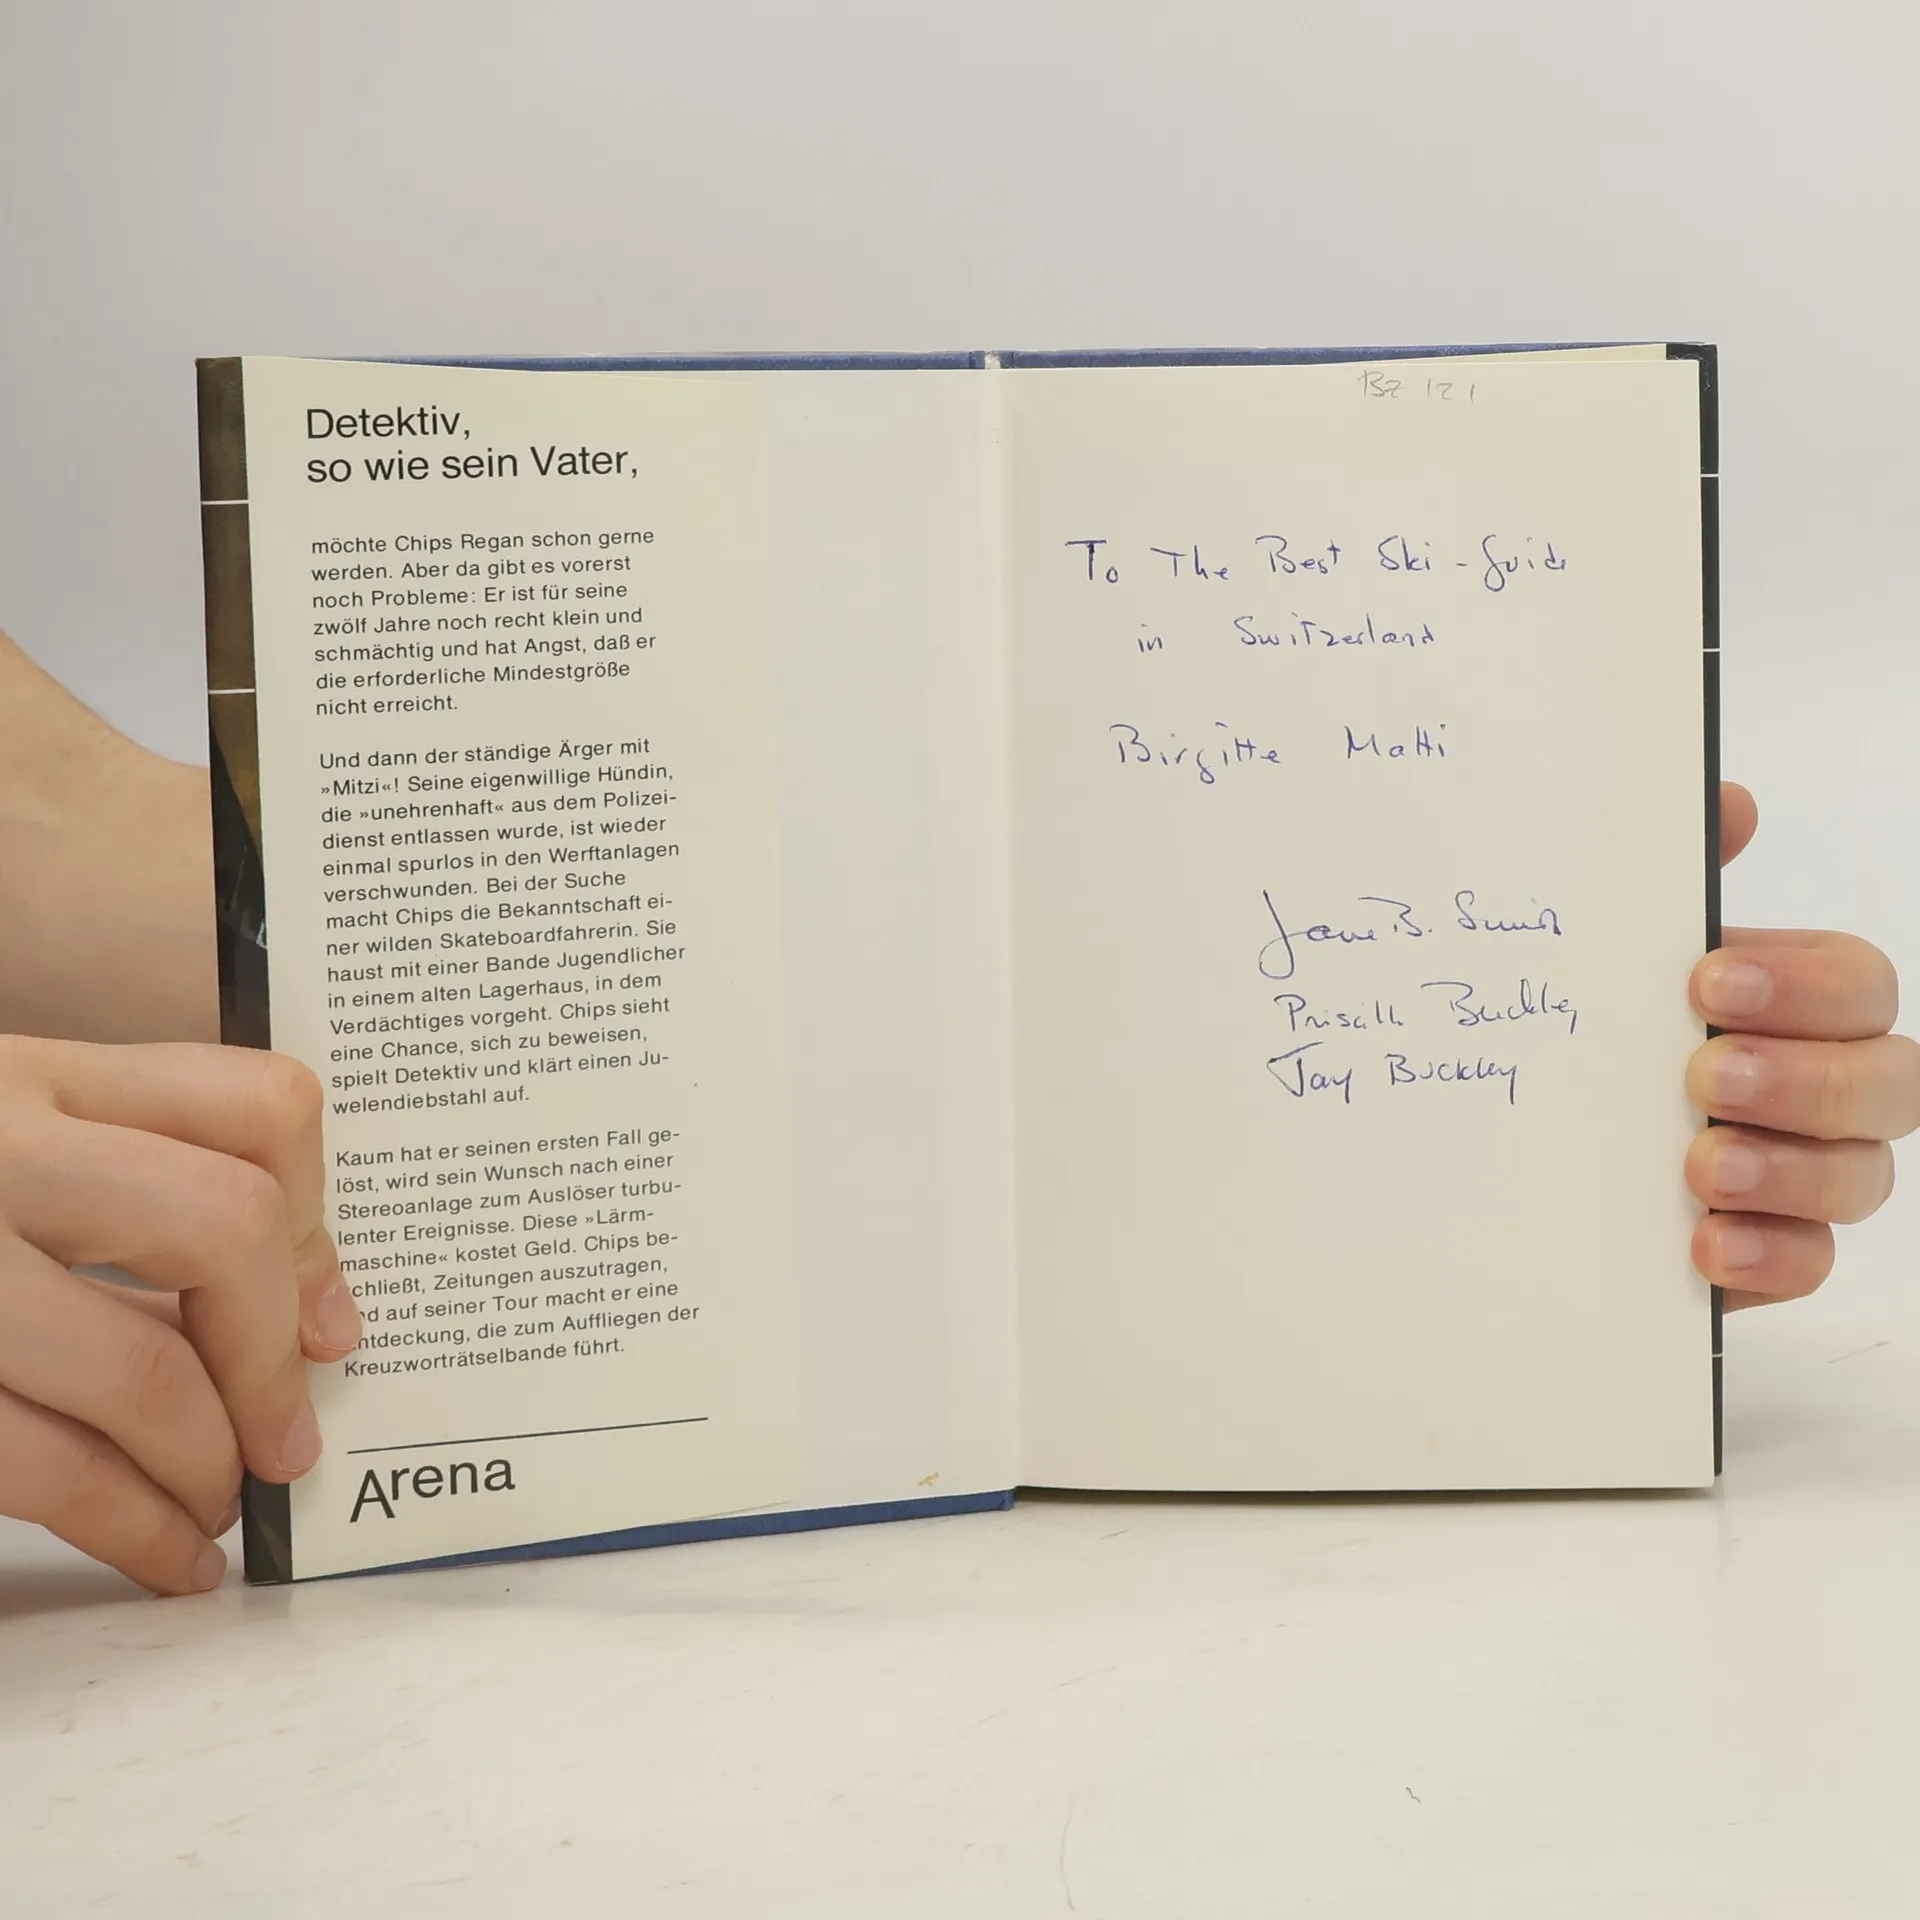 Detektiv,
so wie sein Vater,
möchte Chips Regan schon gerne
werden. Aber da gibt es vorerst
noch Probleme: Er ist für seine
zwölf Jahre noch recht klein und
schmächtig und hat Angst, daß er
die erforderliche Mindestgröße
nicht erreicht.
Und dann der ständige Ärger mit
»Mitzi«! Seine eigenwillige Hündin,
die »unehrenhaft« aus dem Polizei-
dienst entlassen wurde, ist wieder
einmal spurlos in den Werftanlagen
verschwunden. Bei der Suche
macht Chips die Bekanntschaft ei-
ner wilden Skateboardfahrerin. Sie
haust mit einer Bande Jugendlicher
in einem alten Lagerhaus, in dem
Verdächtiges vorgeht. Chips sieht
eine Chance, sich zu beweisen,
spielt Detektiv und klärt einen Ju-
welendiebstahl auf.
Kaum hat er seinen ersten Fall ge-
löst, wird sein Wunsch nach einer
Stereoanlage zum Auslöser turbu-
lenter Ereignisse. Diese »Lärm-
maschine« kostet Geld. Chips be-
chließt, Zeitungen auszutragen,
nd auf seiner Tour macht er eine
ntdeckung, die zum Auffliegen der
Kreuzworträtselbande führt.
Arena
To The Best Ski-Guide
in Switzerland
Birgitte Matti
Jane B.
Buckley
Jay Buckley